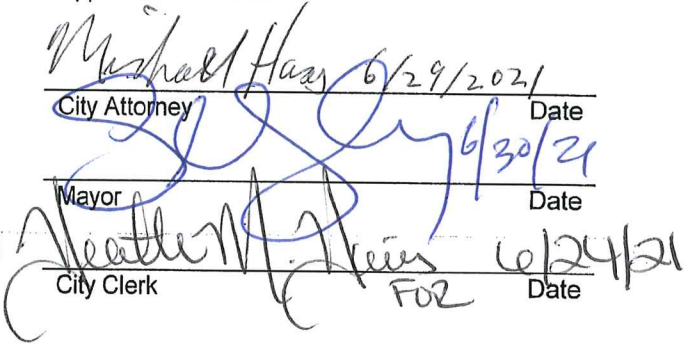 Michael Haas 6/29/2021
City Attorney Date
6/30/21
Mayor Date
Heather M. 6/24/21
City Clerk FOR Date